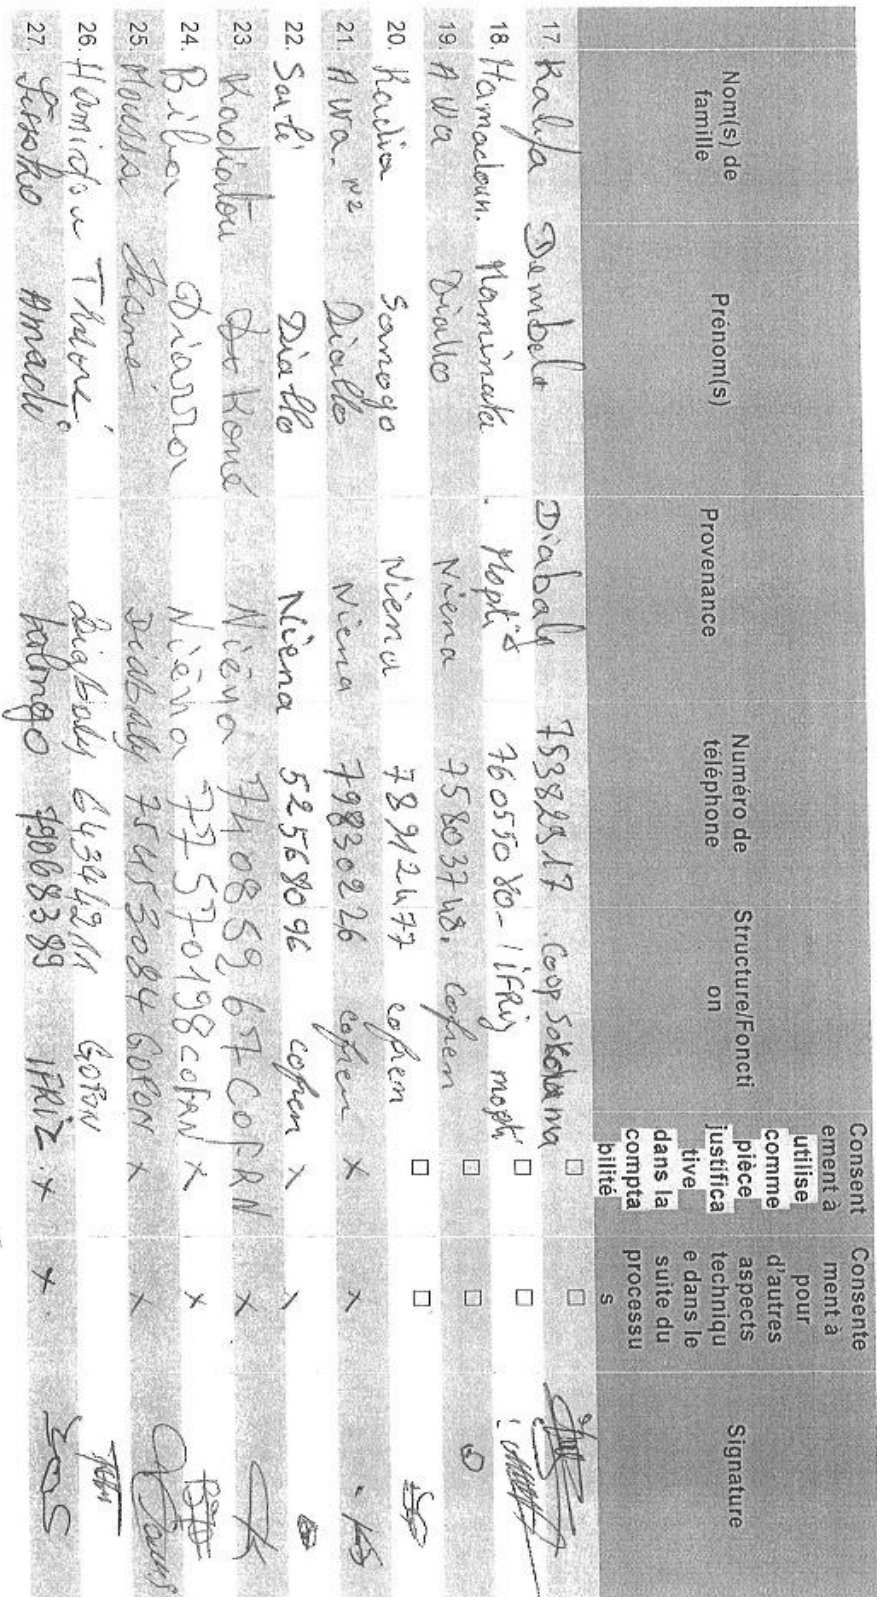 Nom(s) de famille Prénom(s) Provenance Numéro de téléphone Structure/Foncti on Consent ement à utilise comme pièce justifica tive dans la compta bilité Consente ment à pour d'autres aspects techniqu e dans le suite du processu s Signature
17. Kalifa Dembele Diabaly 75382517 Coop Sokolama
18. Hamadoun. Maminata Mopti 76055080 - IFRIZ mopti
19. AWA Diallo Niena 75803748. cofren
20. Kadia Sanogo Niena 78912477 cofren
21. AWA. N2 Diallo Niena 79830226 cofren X X
22. Sali Diallo Niena 52568096 cofren X X
23. Kadiatou Koné Niéna 74085967 COFRN X
24. Biba Diarra Niéna 77570198 COFRN X X
25. Moussa Diabaly 75453084 GOPON X X
26. Hamidou Diabaly 64344211 GOPON
27. Sissoko Amadi 79068389 IFRIZ. X X.